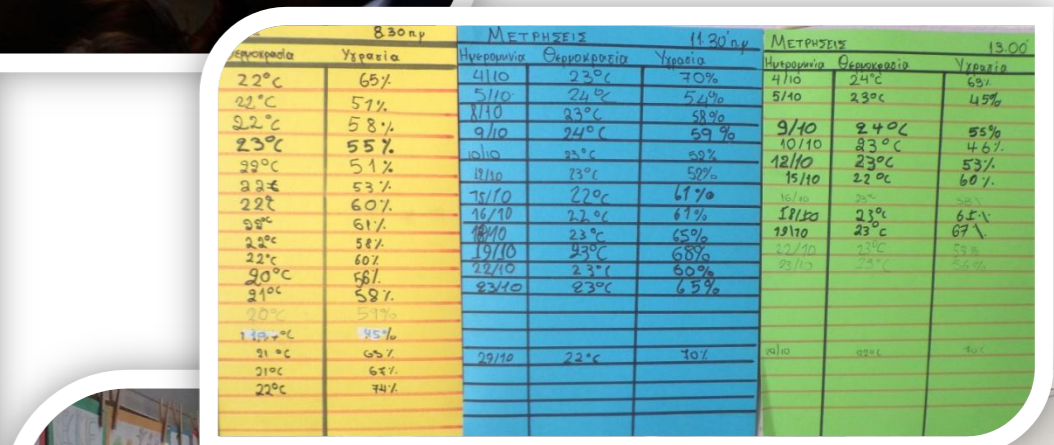 8.30 πμ
Θερμοκρασία Υγρασία
22°C 65%
22°C 51%
22°C 58%
23°C 55%
22°C 51%
22°C 53%
22°C 60%
22°C 61%
22°C 58%
22°C 60%
20°C 56%
21°C 58%
20°C 59%
95%
21°C 65%
21°C 67%
22°C 74%
ΜΕΤΡΗΣΕΙΣ 11.30' πμ
Ημερομηνία Θερμοκρασία Υγρασία
4/10 23°C 70%
5/10 24°C 54%
8/10 23°C 58%
9/10 24°C 59%
10/10 23°C 52%
12/10 23°C 52%
15/10 22°C 61%
16/10 22°C 61%
18/10 23°C 65%
19/10 23°C 68%
22/10 23°C 60%
23/10 23°C 65%
29/10 22°C 70%
ΜΕΤΡΗΣΕΙΣ 13.00'
Ημερομηνία Θερμοκρασία Υγρασία
4/10 24°C 69%
5/10 23°C 45%
9/10 24°C 55%
10/10 23°C 46%
12/10 23°C 53%
15/10 22°C 60%
16/10 23°C 58%
18/10 23°C 65%
19/10 23°C 67%
22/10 23°C 53%
23/10 23°C 56%
22°C 70%